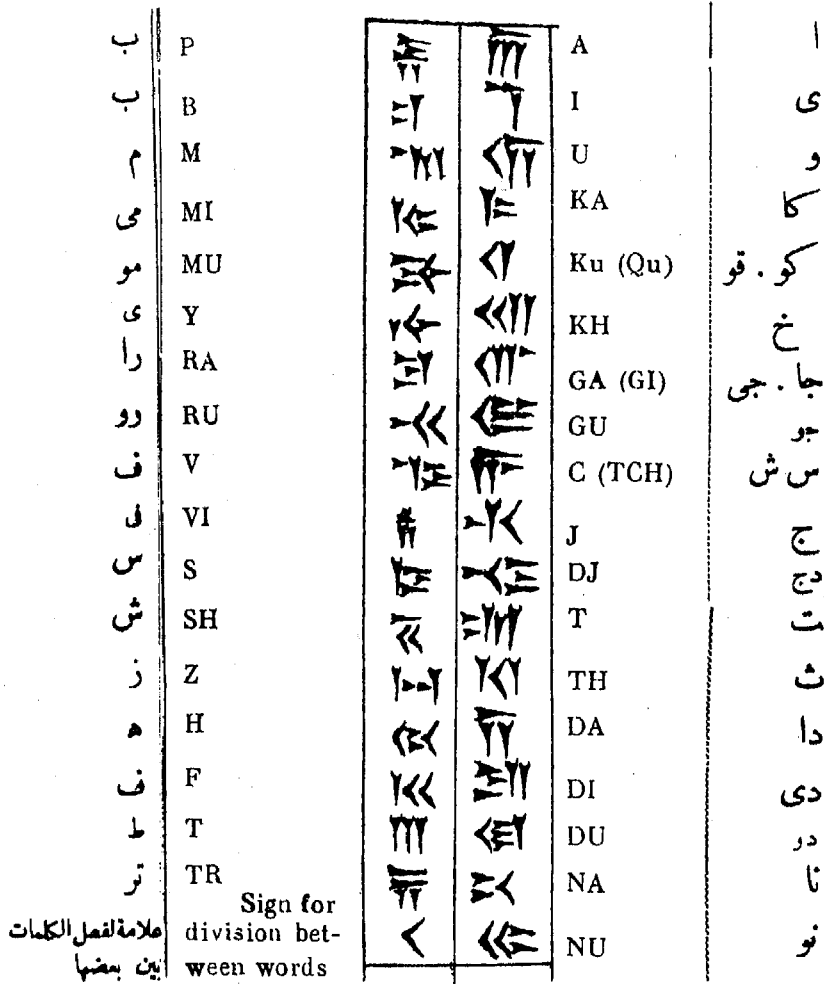 ب P 𐎱 𐎠 A ا
ب B 𐎲 𐎡 I ى
م M 𐎶 𐎢 U و
مى MI 𐎷 𐎣 KA كا
مو MU 𐎸 𐎤 Ku (Qu) كو . قو
ى Y 𐎹 𐎧 KH خ
را RA 𐎼 𐎥 GA (GI) جا . جى
رو RU 𐎽 𐎦 GU جو
ف V 𐎺 𐎨 C (TCH) س ش
فى VI 𐎻 𐎩 J ج
س S 𐎿 𐎪 DJ دج
ش SH 𐏁 𐎫 T ت
ز Z 𐏀 𐎰 TH ث
ه H 𐏃 𐎭 DA دا
ف F 𐎳 𐎮 DI دى
ط T 𐎯 DU دو
تر TR 𐏂 𐎴 NA نا
علامة لفصل الكلمات بين بعضها Sign for division bet-
ween words 𐏐 𐎵 NU نو